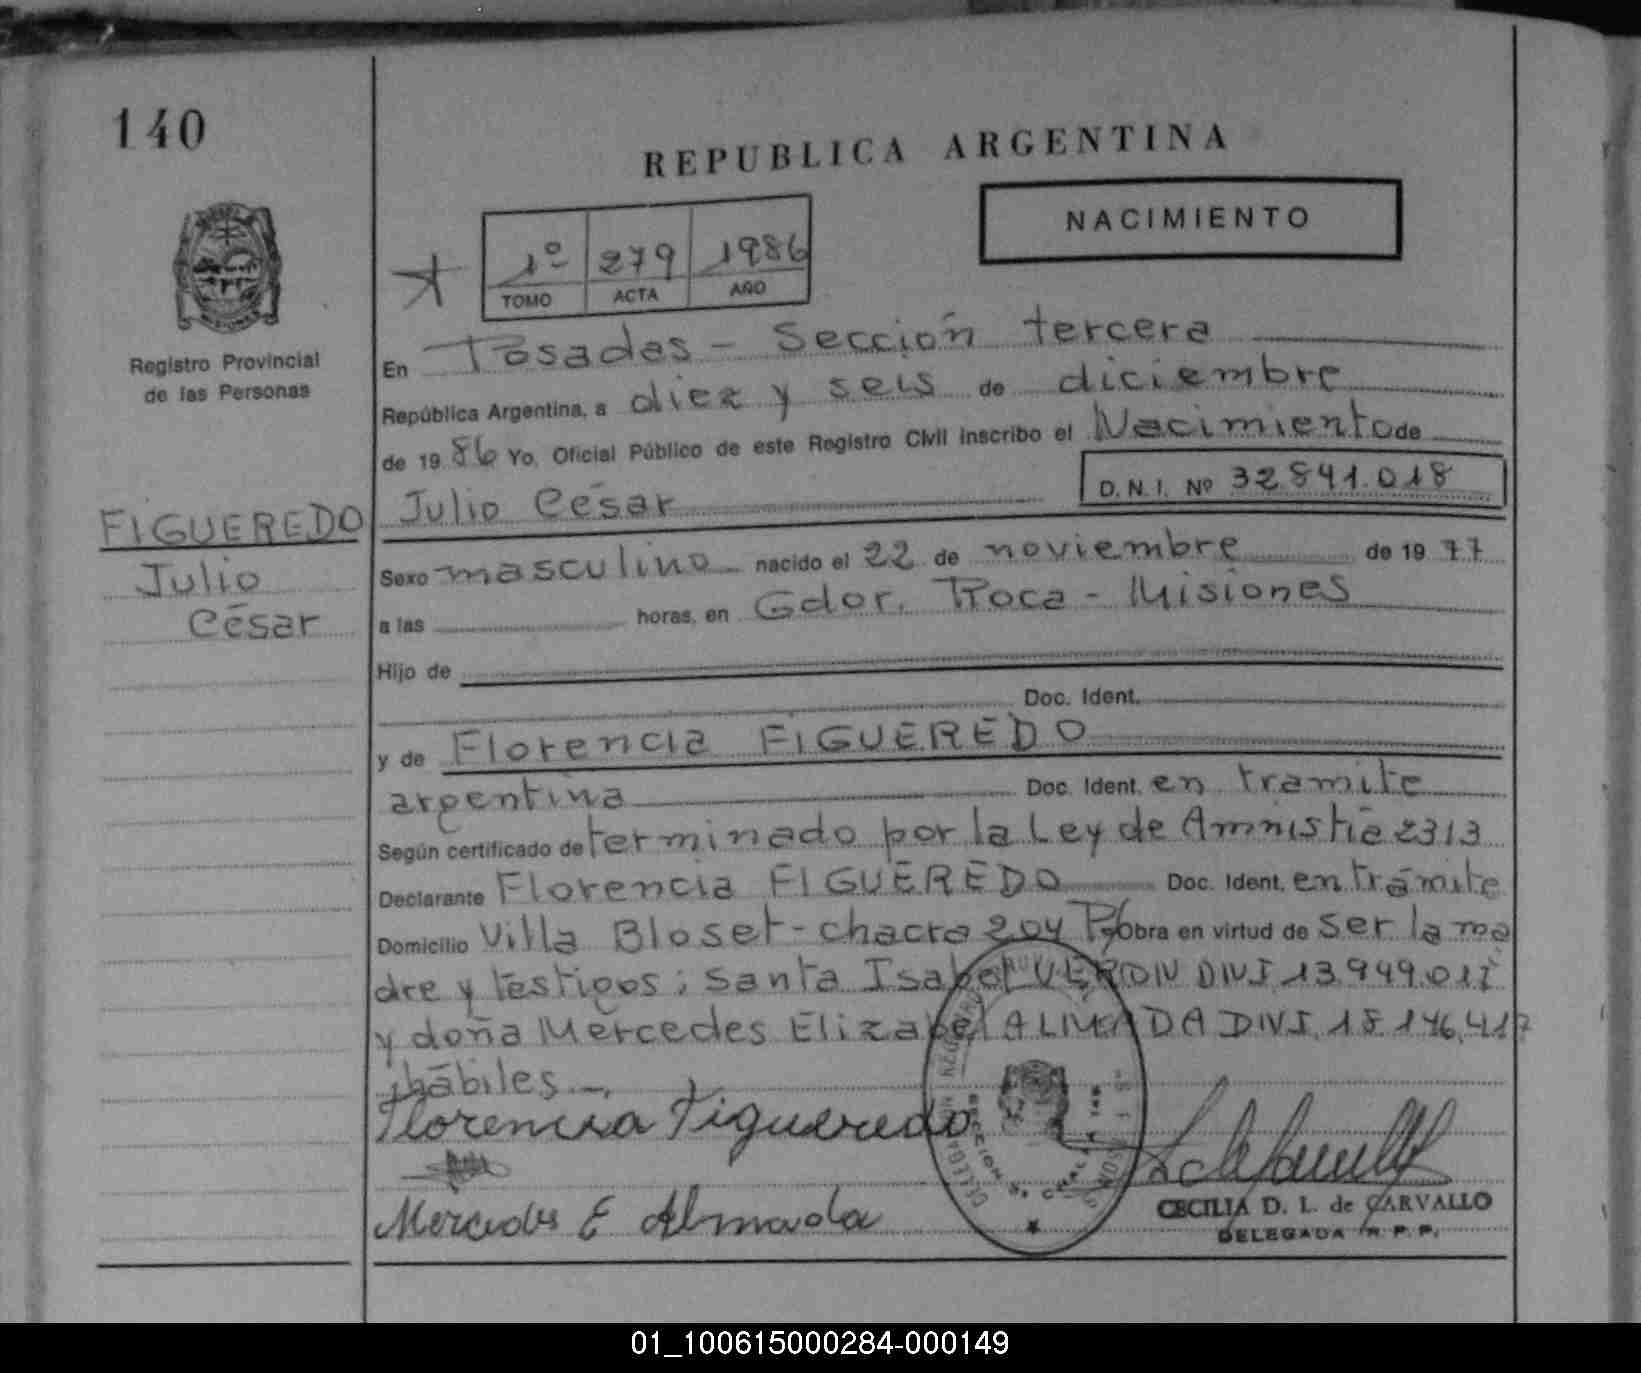 140
REPUBLICA ARGENTINA
NACIMIENTO
1º 279 1986
TOMO ACTA AÑO
Registro Provincial
de las Personas
En Posadas - Sección tercera
República Argentina, a diez y seis de diciembre
de 19 86 Yo, Oficial Público de este Registro Civil inscribo el Nacimiento de
D.N.I. Nº 32841.018
Julio César
FIGUEREDO
Julio
César
Sexo masculino nacido el 22 de noviembre de 19 77
a las horas, en Gdor. Roca - Misiones
Hijo de
Doc. Ident.
y de Florencia FIGUEREDO
argentina Doc. Ident. en tramite
Según certificado determinado por la Ley de Amnistia 2313
Declarante Florencia FIGUEREDO Doc. Ident. en trámite
Domicilio Villa Bloset - chacra 204 obra en virtud de ser la ma
dre y testigos; Santa Isabel VERON DNI 13.949.011
y doña Mercedes Elizabel ALMADA DNI. 18.146.417
hábiles -.
Florencia Figueredo
Mercedes E Almada
CECILIA D. L. de CARVALLO
DELEGADA R.P.P.
01_100615000284-000149